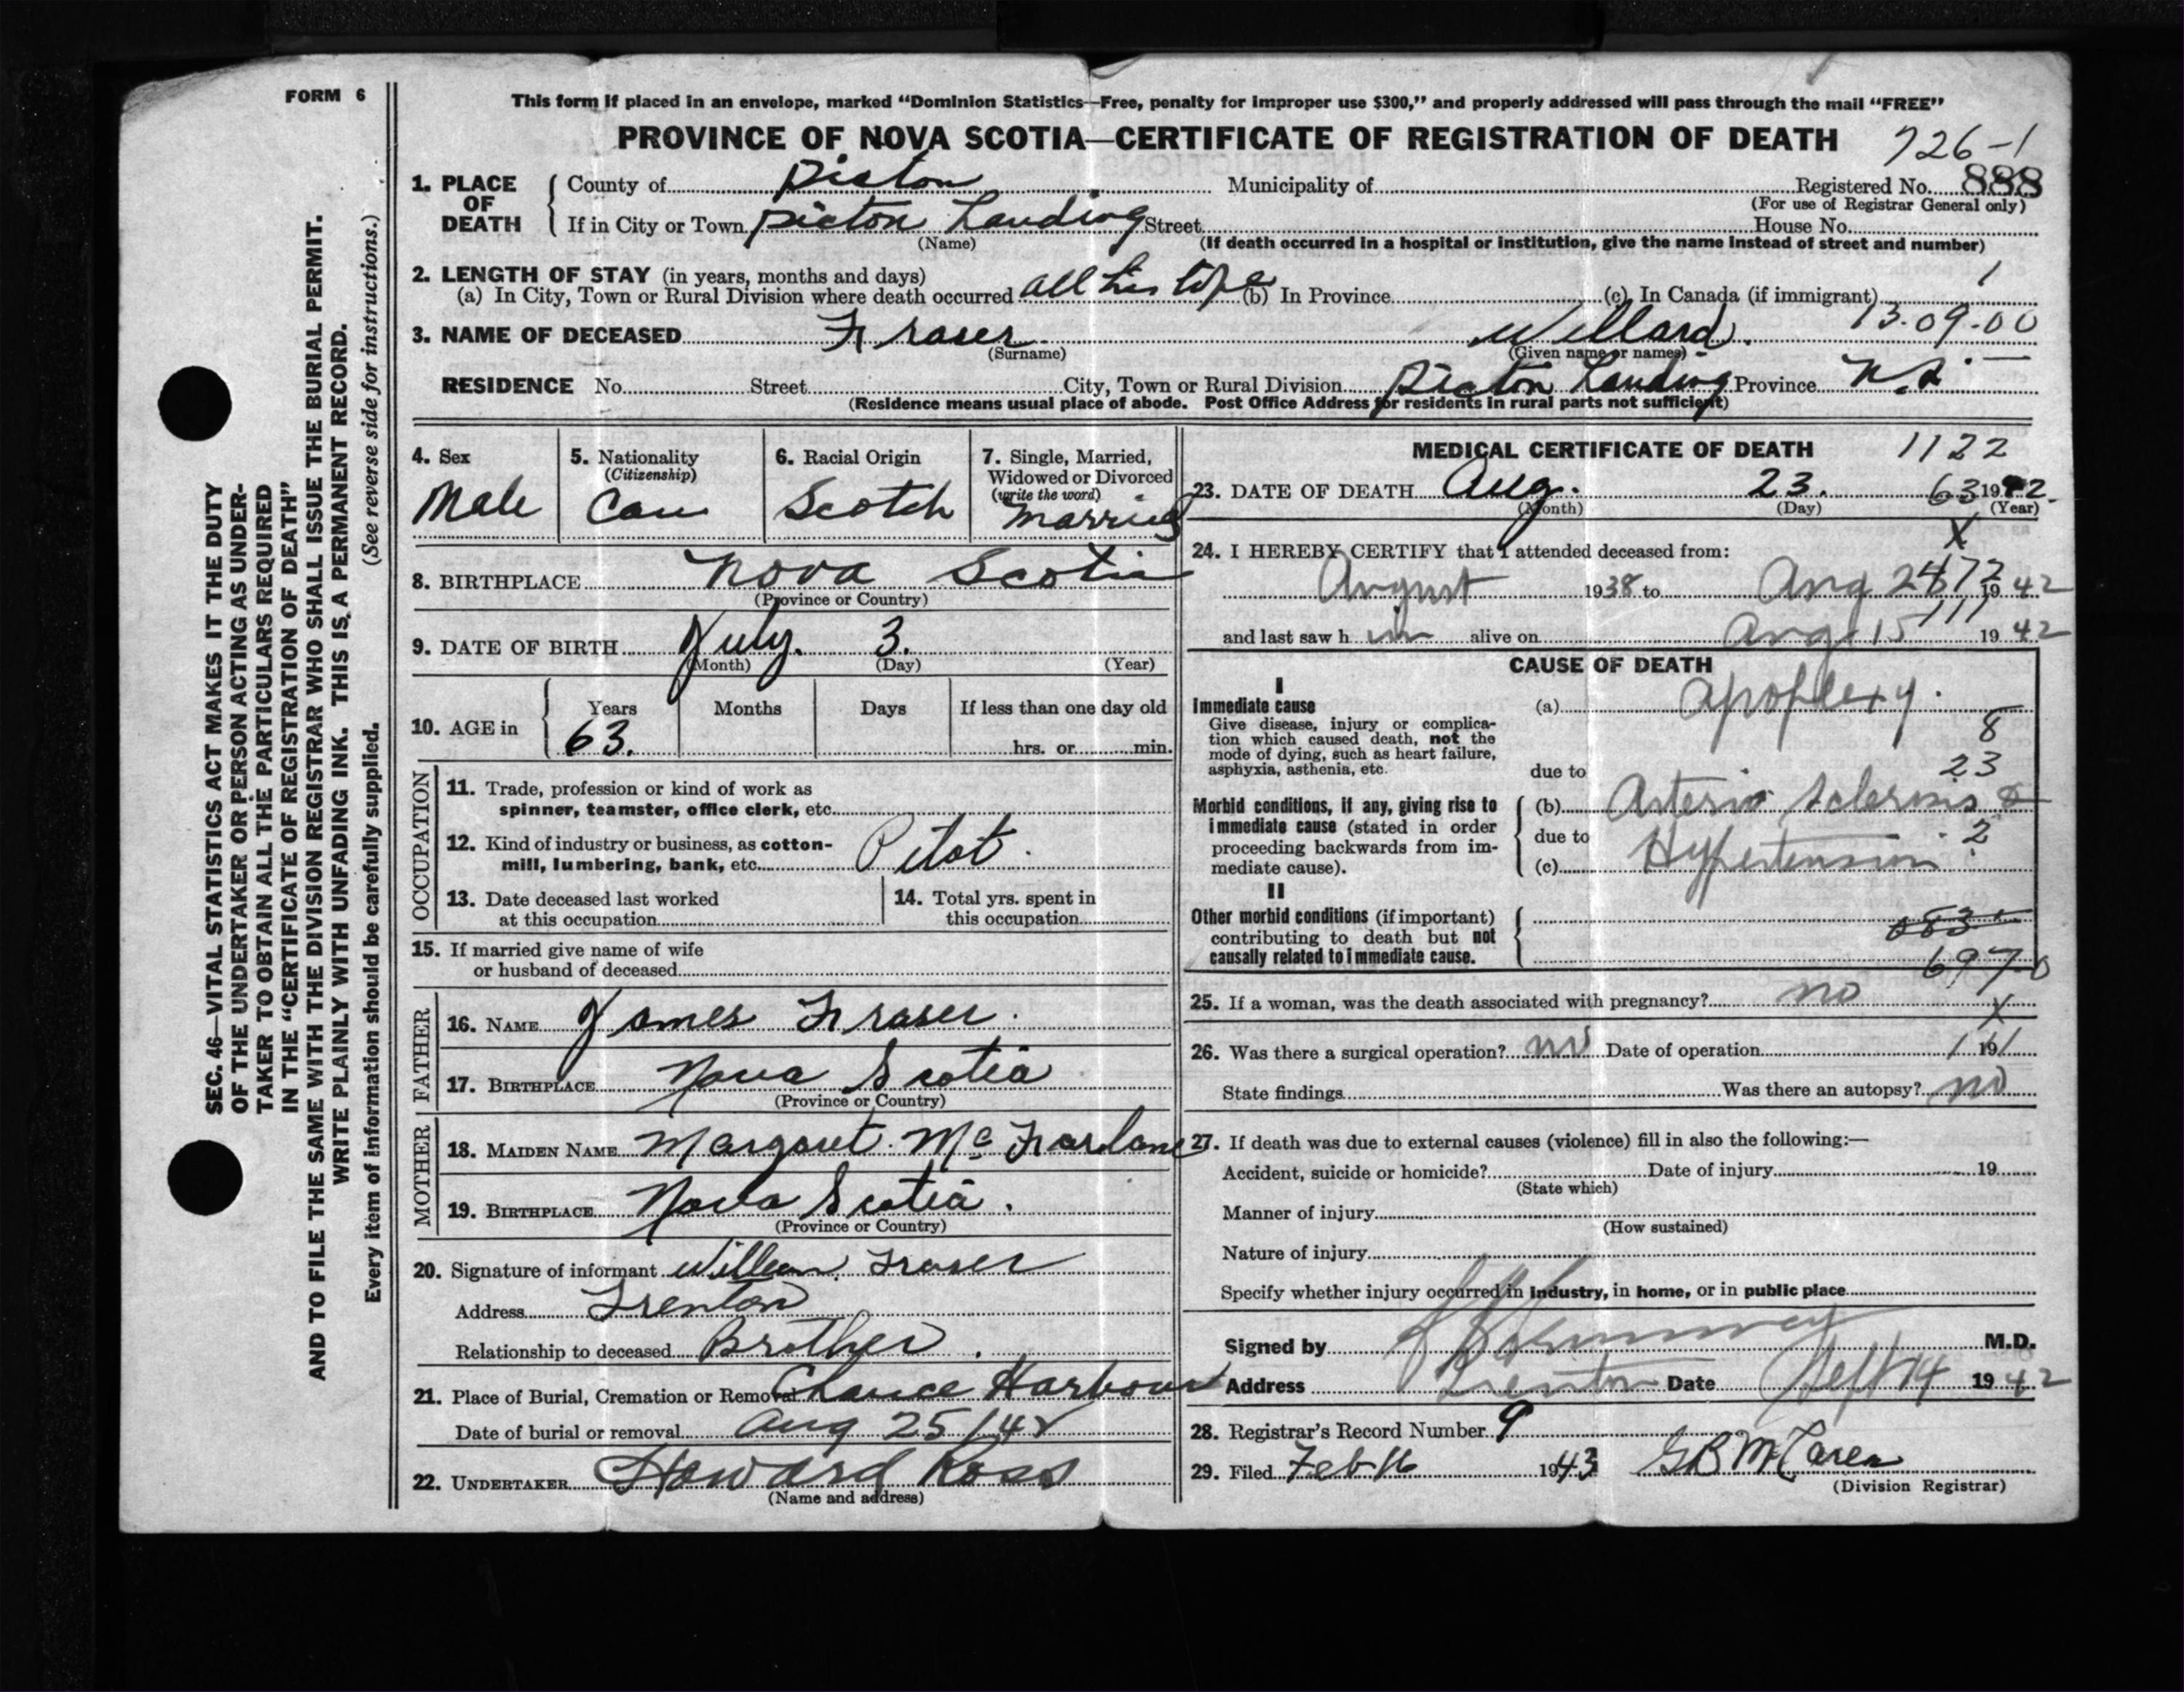 FORM 6
This form if placed in an envelope, marked "Dominion Statistics—Free, penalty for improper use $300," and properly addressed will pass through the mail "FREE"
PROVINCE OF NOVA SCOTIA—CERTIFICATE OF REGISTRATION OF DEATH
726-1
1. PLACE OF DEATH County of Pictou Municipality of Registered No. 888
(For use of Registrar General only)
If in City or Town Pictou Landing Street House No.
(Name) (If death occurred in a hospital or institution, give the name instead of street and number)
2. LENGTH OF STAY (in years, months and days) 1
(a) In City, Town or Rural Division where death occurred all his life (b) In Province (c) In Canada (if immigrant)
3. NAME OF DECEASED Fraser Willard. 13.09.00
(Surname) (Given name or names)
RESIDENCE No. Street City, Town or Rural Division Pictou Landing Province N.S.
(Residence means usual place of abode. Post Office Address for residents in rural parts not sufficient)
SEC. 46—VITAL STATISTICS ACT MAKES IT THE DUTY
OF THE UNDERTAKER OR PERSON ACTING AS UNDER-
TAKER TO OBTAIN ALL THE PARTICULARS REQUIRED
IN THE "CERTIFICATE OF REGISTRATION OF DEATH"
AND TO FILE THE SAME WITH THE DIVISION REGISTRAR WHO SHALL ISSUE THE BURIAL PERMIT.
WRITE PLAINLY WITH UNFADING INK. THIS IS A PERMANENT RECORD.
Every item of information should be carefully supplied. (See reverse side for instructions.)
4. Sex Male
5. Nationality (Citizenship) Can
6. Racial Origin Scotch
7. Single, Married, Widowed or Divorced (write the word) Married
8. BIRTHPLACE Nova Scotia
(Province or Country)
9. DATE OF BIRTH July. 3.
(Month) (Day) (Year)
10. AGE in Years Months Days If less than one day old
63. hrs. or min.
OCCUPATION
11. Trade, profession or kind of work as
spinner, teamster, office clerk, etc.
12. Kind of industry or business, as cotton-
mill, lumbering, bank, etc. Pilot.
13. Date deceased last worked
at this occupation
14. Total yrs. spent in
this occupation
15. If married give name of wife
or husband of deceased
FATHER
16. NAME James Fraser.
17. BIRTHPLACE Nova Scotia
(Province or Country)
MOTHER
18. MAIDEN NAME Margaret McFarlane
19. BIRTHPLACE Nova Scotia.
(Province or Country)
20. Signature of informant William Fraser
Address Trenton
Relationship to deceased Brother.
21. Place of Burial, Cremation or Removal Chance Harbour
Date of burial or removal Aug 25/42
22. UNDERTAKER Howard Ross
(Name and address)
MEDICAL CERTIFICATE OF DEATH 1122
23. DATE OF DEATH Aug. 23. 63 1942.
(Month) (Day) (Year)
X
24. I HEREBY CERTIFY that I attended deceased from:
August 1938 to Aug 1942
and last saw h im alive on Aug 15 111 1942
CAUSE OF DEATH
I
Immediate cause (a) apoplexy.
Give disease, injury or complica-
tion which caused death, not the 8
mode of dying, such as heart failure,
asphyxia, asthenia, etc. due to 23
Morbid conditions, if any, giving rise to (b) Arterio Sclerosis &
immediate cause (stated in order
proceeding backwards from im- due to 2
mediate cause). (c) Hypertension
II
Other morbid conditions (if important)
contributing to death but not 083
causally related to immediate cause. 697 0
25. If a woman, was the death associated with pregnancy? no
X
26. Was there a surgical operation? no Date of operation 19
State findings Was there an autopsy? no
27. If death was due to external causes (violence) fill in also the following:—
Accident, suicide or homicide? Date of injury 19
(State which)
Manner of injury
(How sustained)
Nature of injury
Specify whether injury occurred in industry, in home, or in public place
Signed by M.D.
Address Trenton Date Sept 14 1942
28. Registrar's Record Number 9
29. Filed Feb 16 1943 G B McLaren
(Division Registrar)